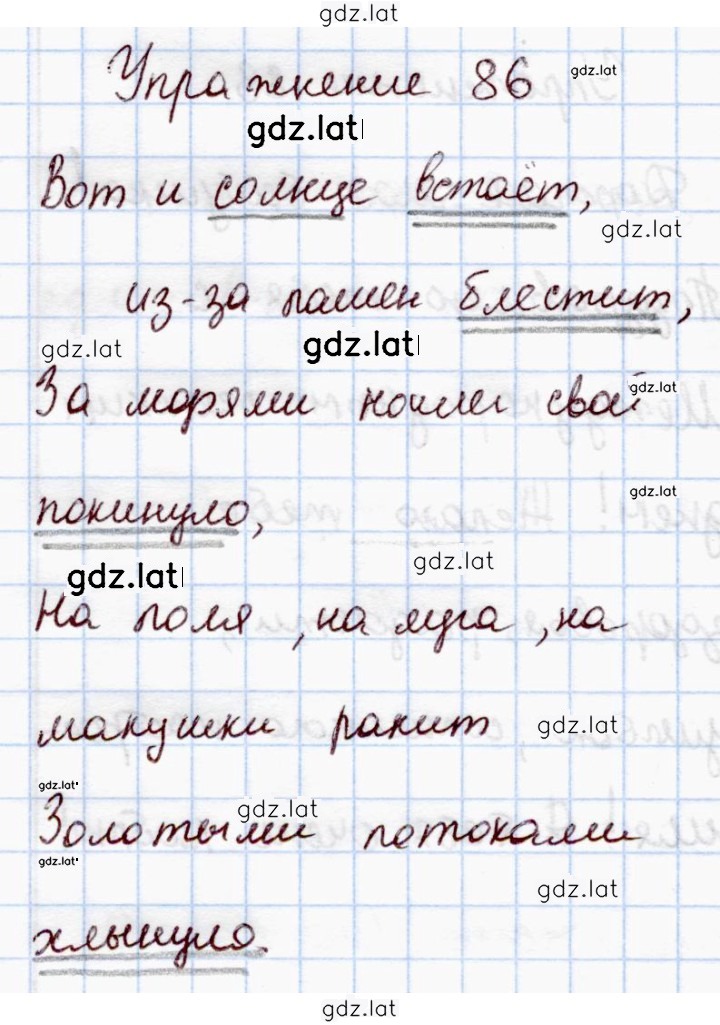 gdz.lat
Упражнение 86 gdz.lat
gdz.lat
Вот и солнце встаёт,
gdz.lat
из-за пашен блестит,
gdz.lat gdz.lat
За морями ночлег свой gdz.lat
gdz.lat
покинуло,
gdz.lat
gdz.lat
На поля, на луга, на
макушки ракит gdz.lat
gdz.lat
gdz.lat
Золотыми потоками
gdz.lat
gdz.lat
хлынуло.
gdz.lat